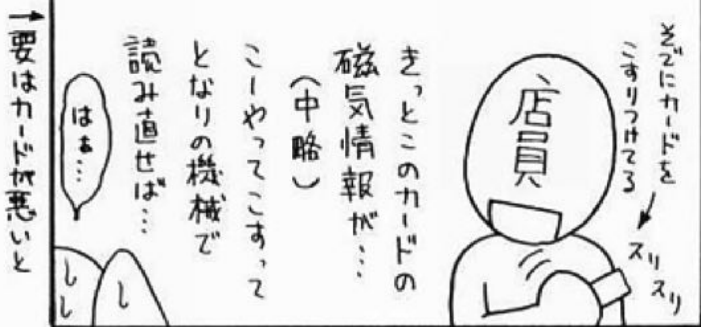 そでにカードを
こすりつけてる
スリ
スリ
店員
きっとこのカードの
磁気情報が…
(中略)
こーやってこすって
となりの機械で
読み直せば…
はぁ…
→要はカードが悪いと